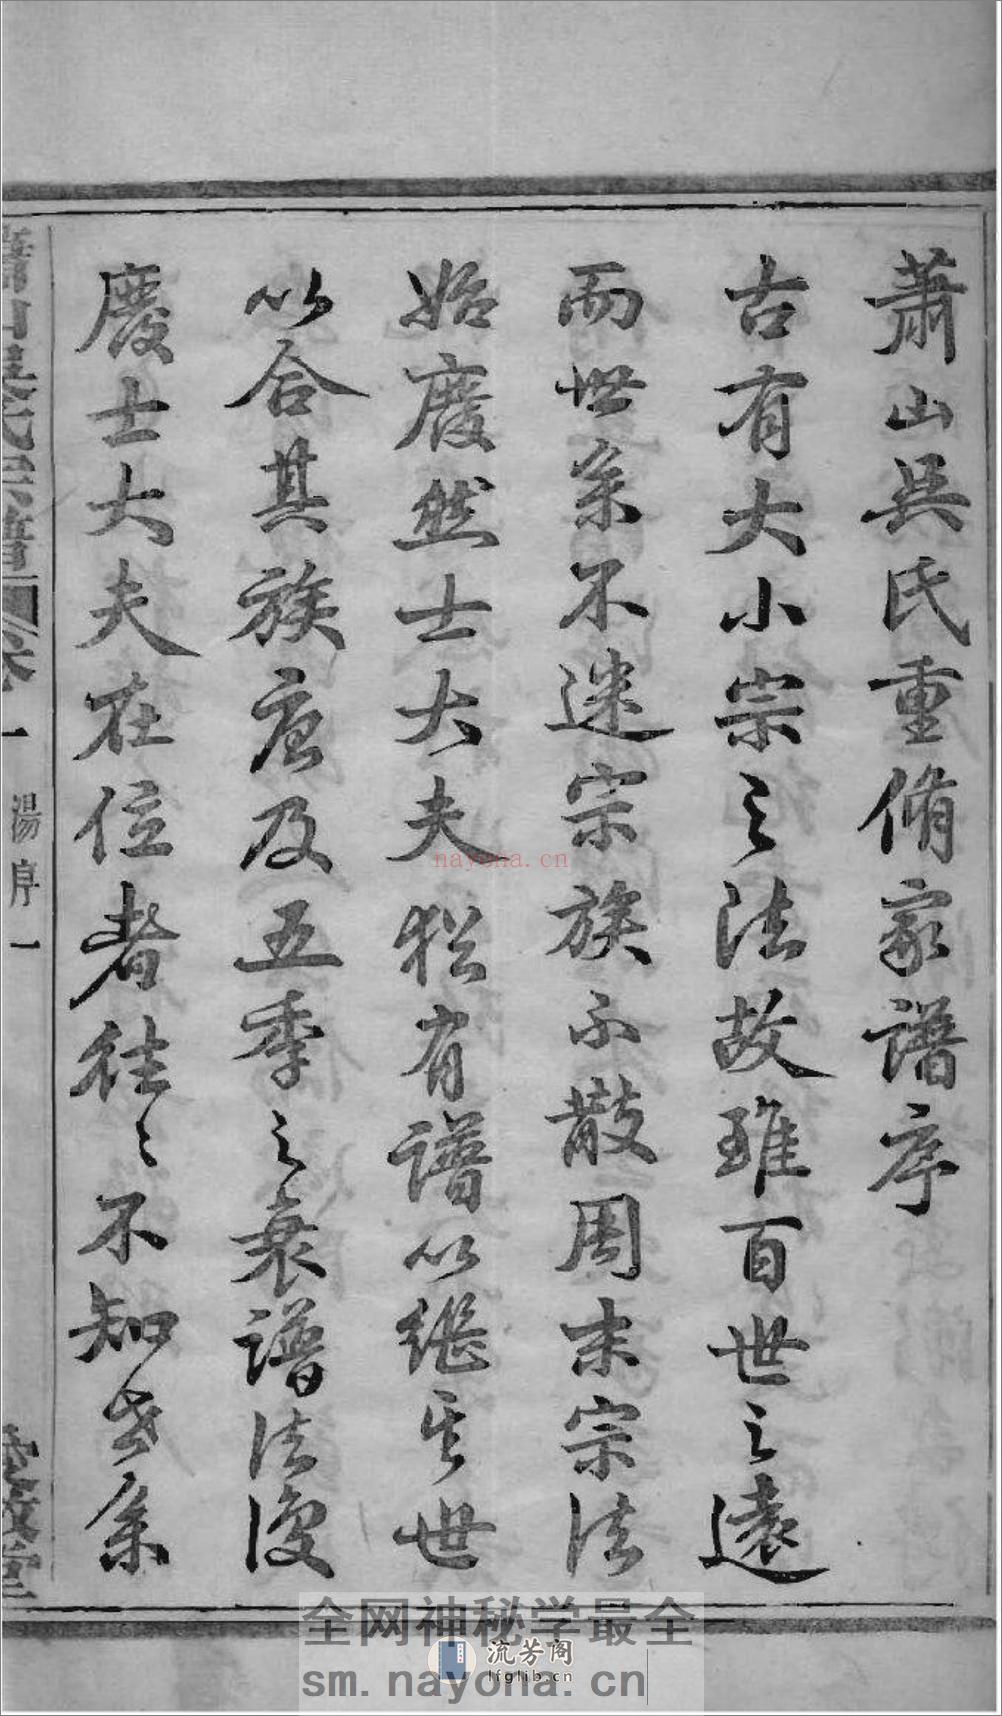 蕭山吳氏重脩家譜序
古有大小宗之法故雖百世之遠
而世系不迷宗族不散周末宗法
始廢然士大夫猶有譜以繼其世
以合其族唐及五季之衰譜法復
廢士大夫在位者往〻不知世系
蕭山吳氏宗譜 卷一 湯序 一
nayona.cn
全网神秘学最全
流芳阁
lfglib.cn
sm.nayona.cn